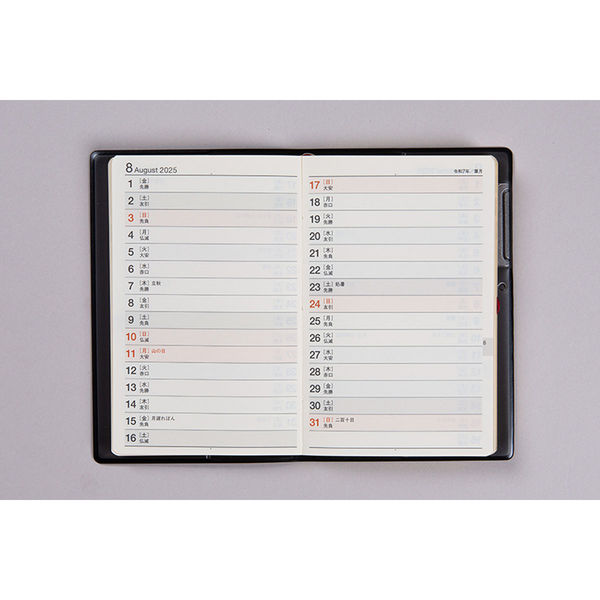 8 August 2025
1 [金]
先勝
2 [土]
友引
3 [日]
先負
4 [月]
仏滅
5 [火]
大安
6 [水]
赤口
7 [木] 立秋
先勝
8 [金]
友引
9 [土]
先負
10 [日]
仏滅
11 [月] 山の日
大安
12 [火]
赤口
13 [水]
先勝
14 [木]
友引
15 [金] 月遅れぼん
先負
16 [土]
仏滅
令和7年/葉月
17 [日]
大安
18 [月]
赤口
19 [火]
先勝
20 [水]
友引
21 [木]
先負
22 [金]
仏滅
23 [土] 処暑
先勝
24 [日]
友引
25 [月]
先負
26 [火]
仏滅
27 [水]
大安
28 [木]
赤口
29 [金]
先勝
30 [土]
友引
31 [日] 二百十日
先負